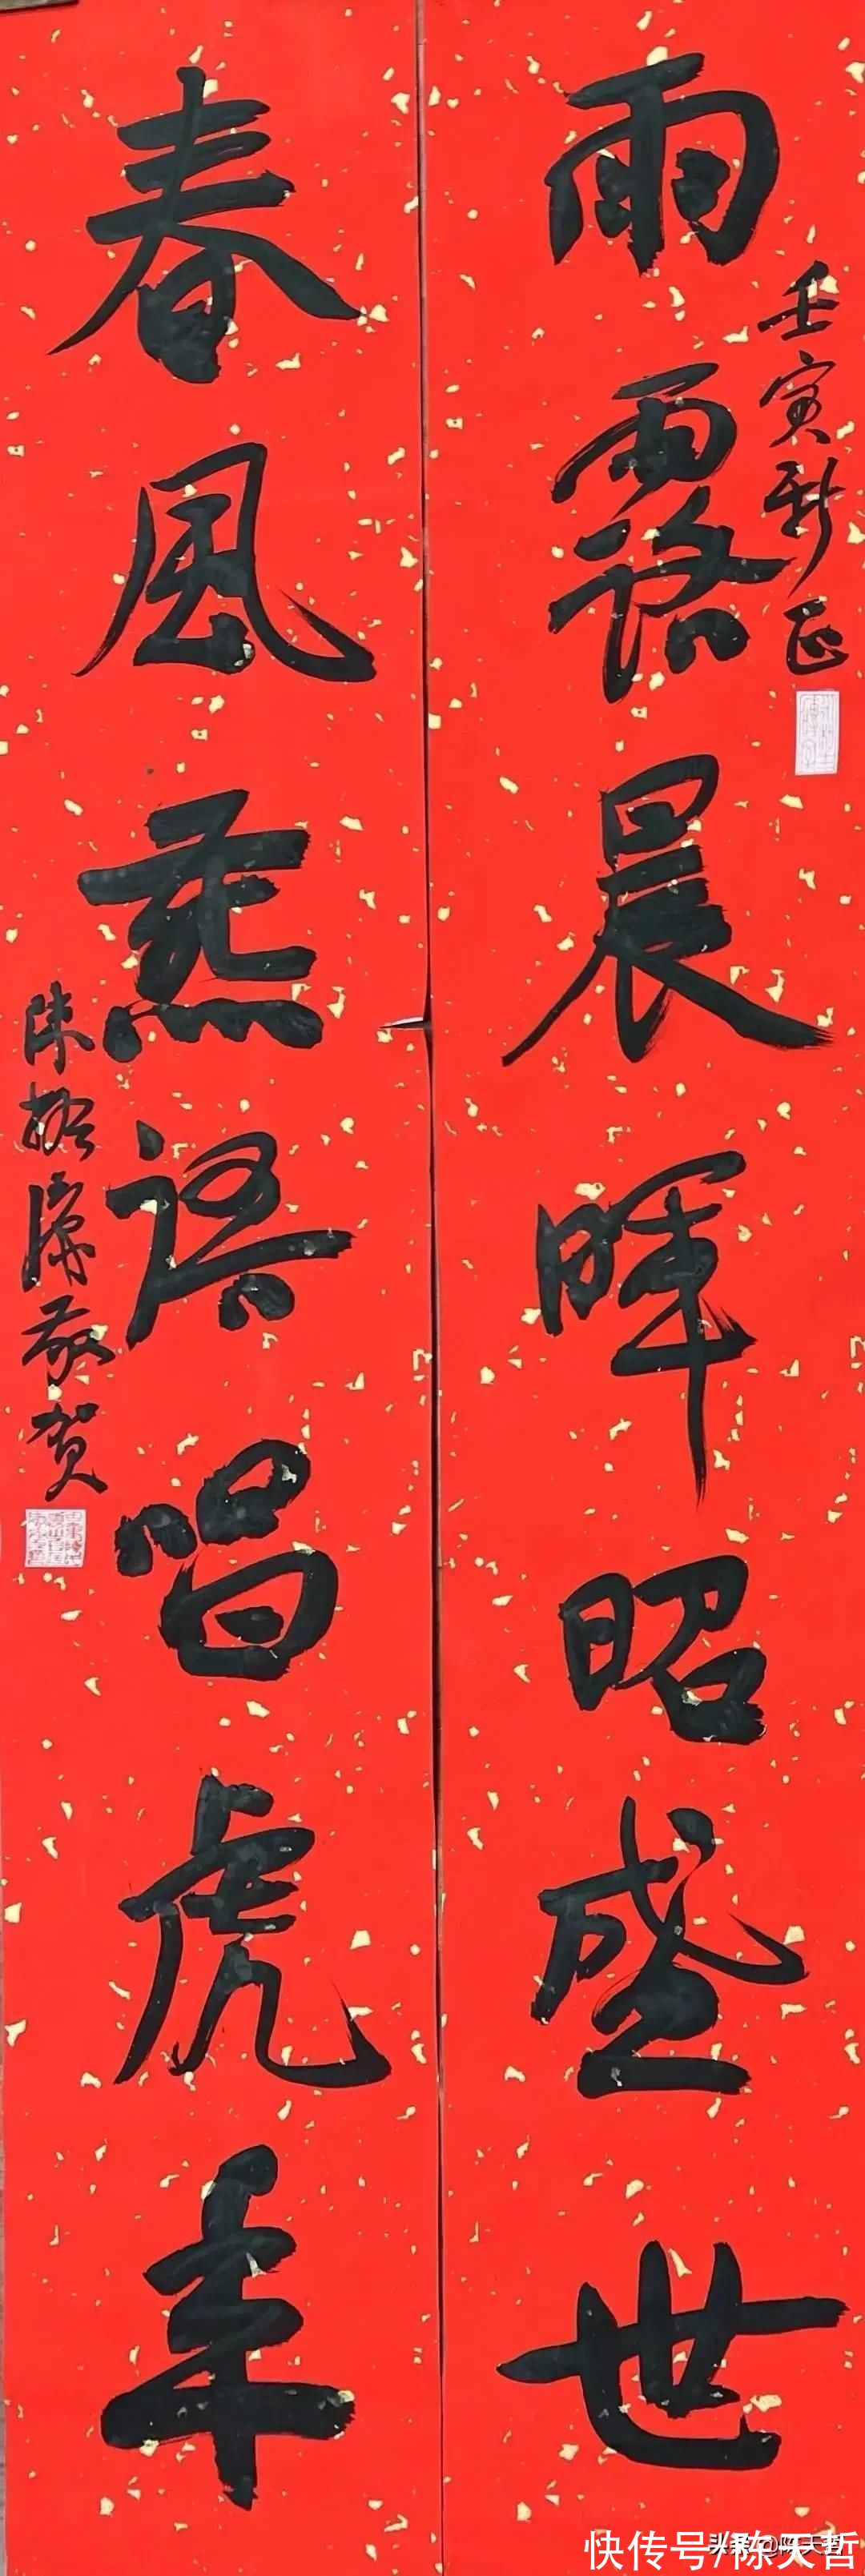 雨露晨暉昭盛世
壬寅新正
春風燕語唱虎年
陈振濂敬贺
快传号/陈天哲